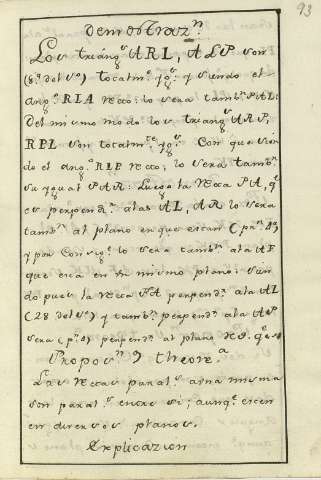 93
Demostrazn.
Los triangs ARL, ALP son
(8.a del 1o) totalme. ygs. y siendo el
ango RIA recto: lo sera tambn. PAL:
Del mismo modo los triangs ARP,
REL son totalmte. ygs. Con que sien
do el ango RLE recto, lo sera tambn.
su ygual PAR: Luego la recta PA, q.
es perpendr. a las AL, AR lo sera
tambn. al plano en que estan
y por lo sera tambn. a la AF
que esta en su mismo plano: sien
do pues la recta PA perpendr. a la AL
(28 del 1o) y tambn. perpendr. a la AP
sera perpendr. al plano
Proposn. 9 theore.a
Las rectas parals. a una misma
son parals. entre si; aunq. esten
en diversos planos.
Explicazion